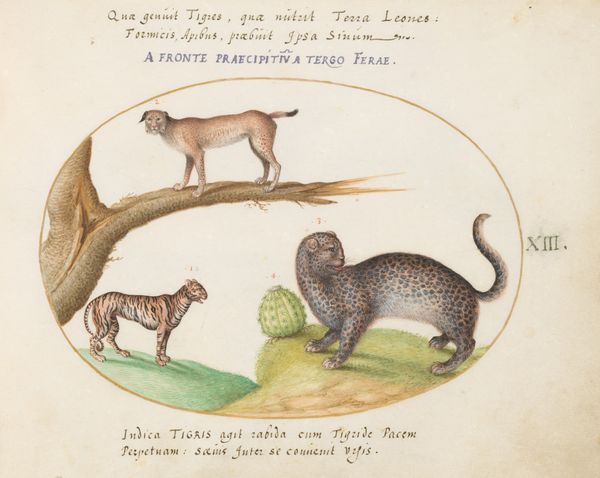 Quæ genuit Tigres, quæ nutrit Terra Leones:
Formicis, Apibus, præbuit Ipsa Sinum
A FRONTE PRAECIPITIV̄ A TERGO FERAE.
2.
XIII.
3.
1.
4.
Indica TIGRIS agit rabida cum Tigride Pacem
Perpetuam: sæuis Inter se conuenit Vrsis.